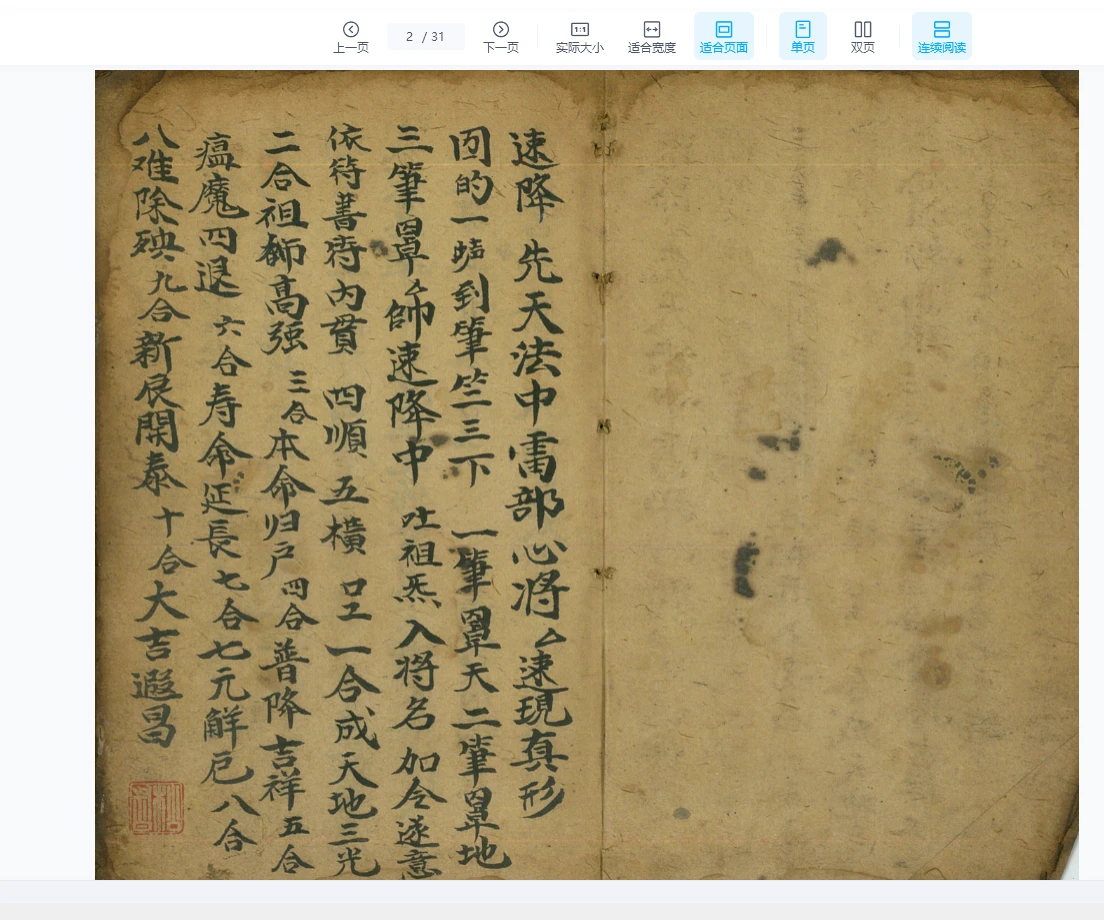 上一页 2 / 31 下一页 实际大小 适合宽度 适合页面 单页 双页 连续阅读
速降 先天法中雷部心将厶速現真形
的一 到筆竺三下 一筆罩天 二筆罩地
三筆罩厶師速降中 吐祖炁入将名 加令遂意
依待書 内貫 四順 五橫 一合成天地三光
二合祖師高强 三合本命归户 四合普降吉祥 五合
瘟魔四退 六合寿命延長 七合七元觧厄 八合
八难除殃 九合新展開泰 十合大吉遐昌